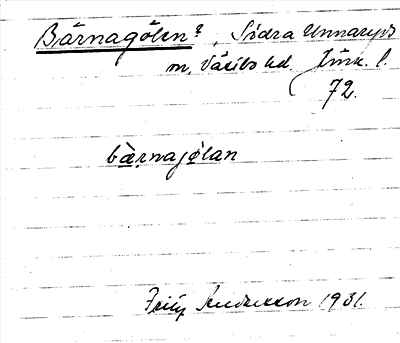 Bärnagölen?, Södra Unnaryds
m, Västbo hd. Jönk. l.
72.
bæ̀rnajølan
Fritz Andersson 1931.